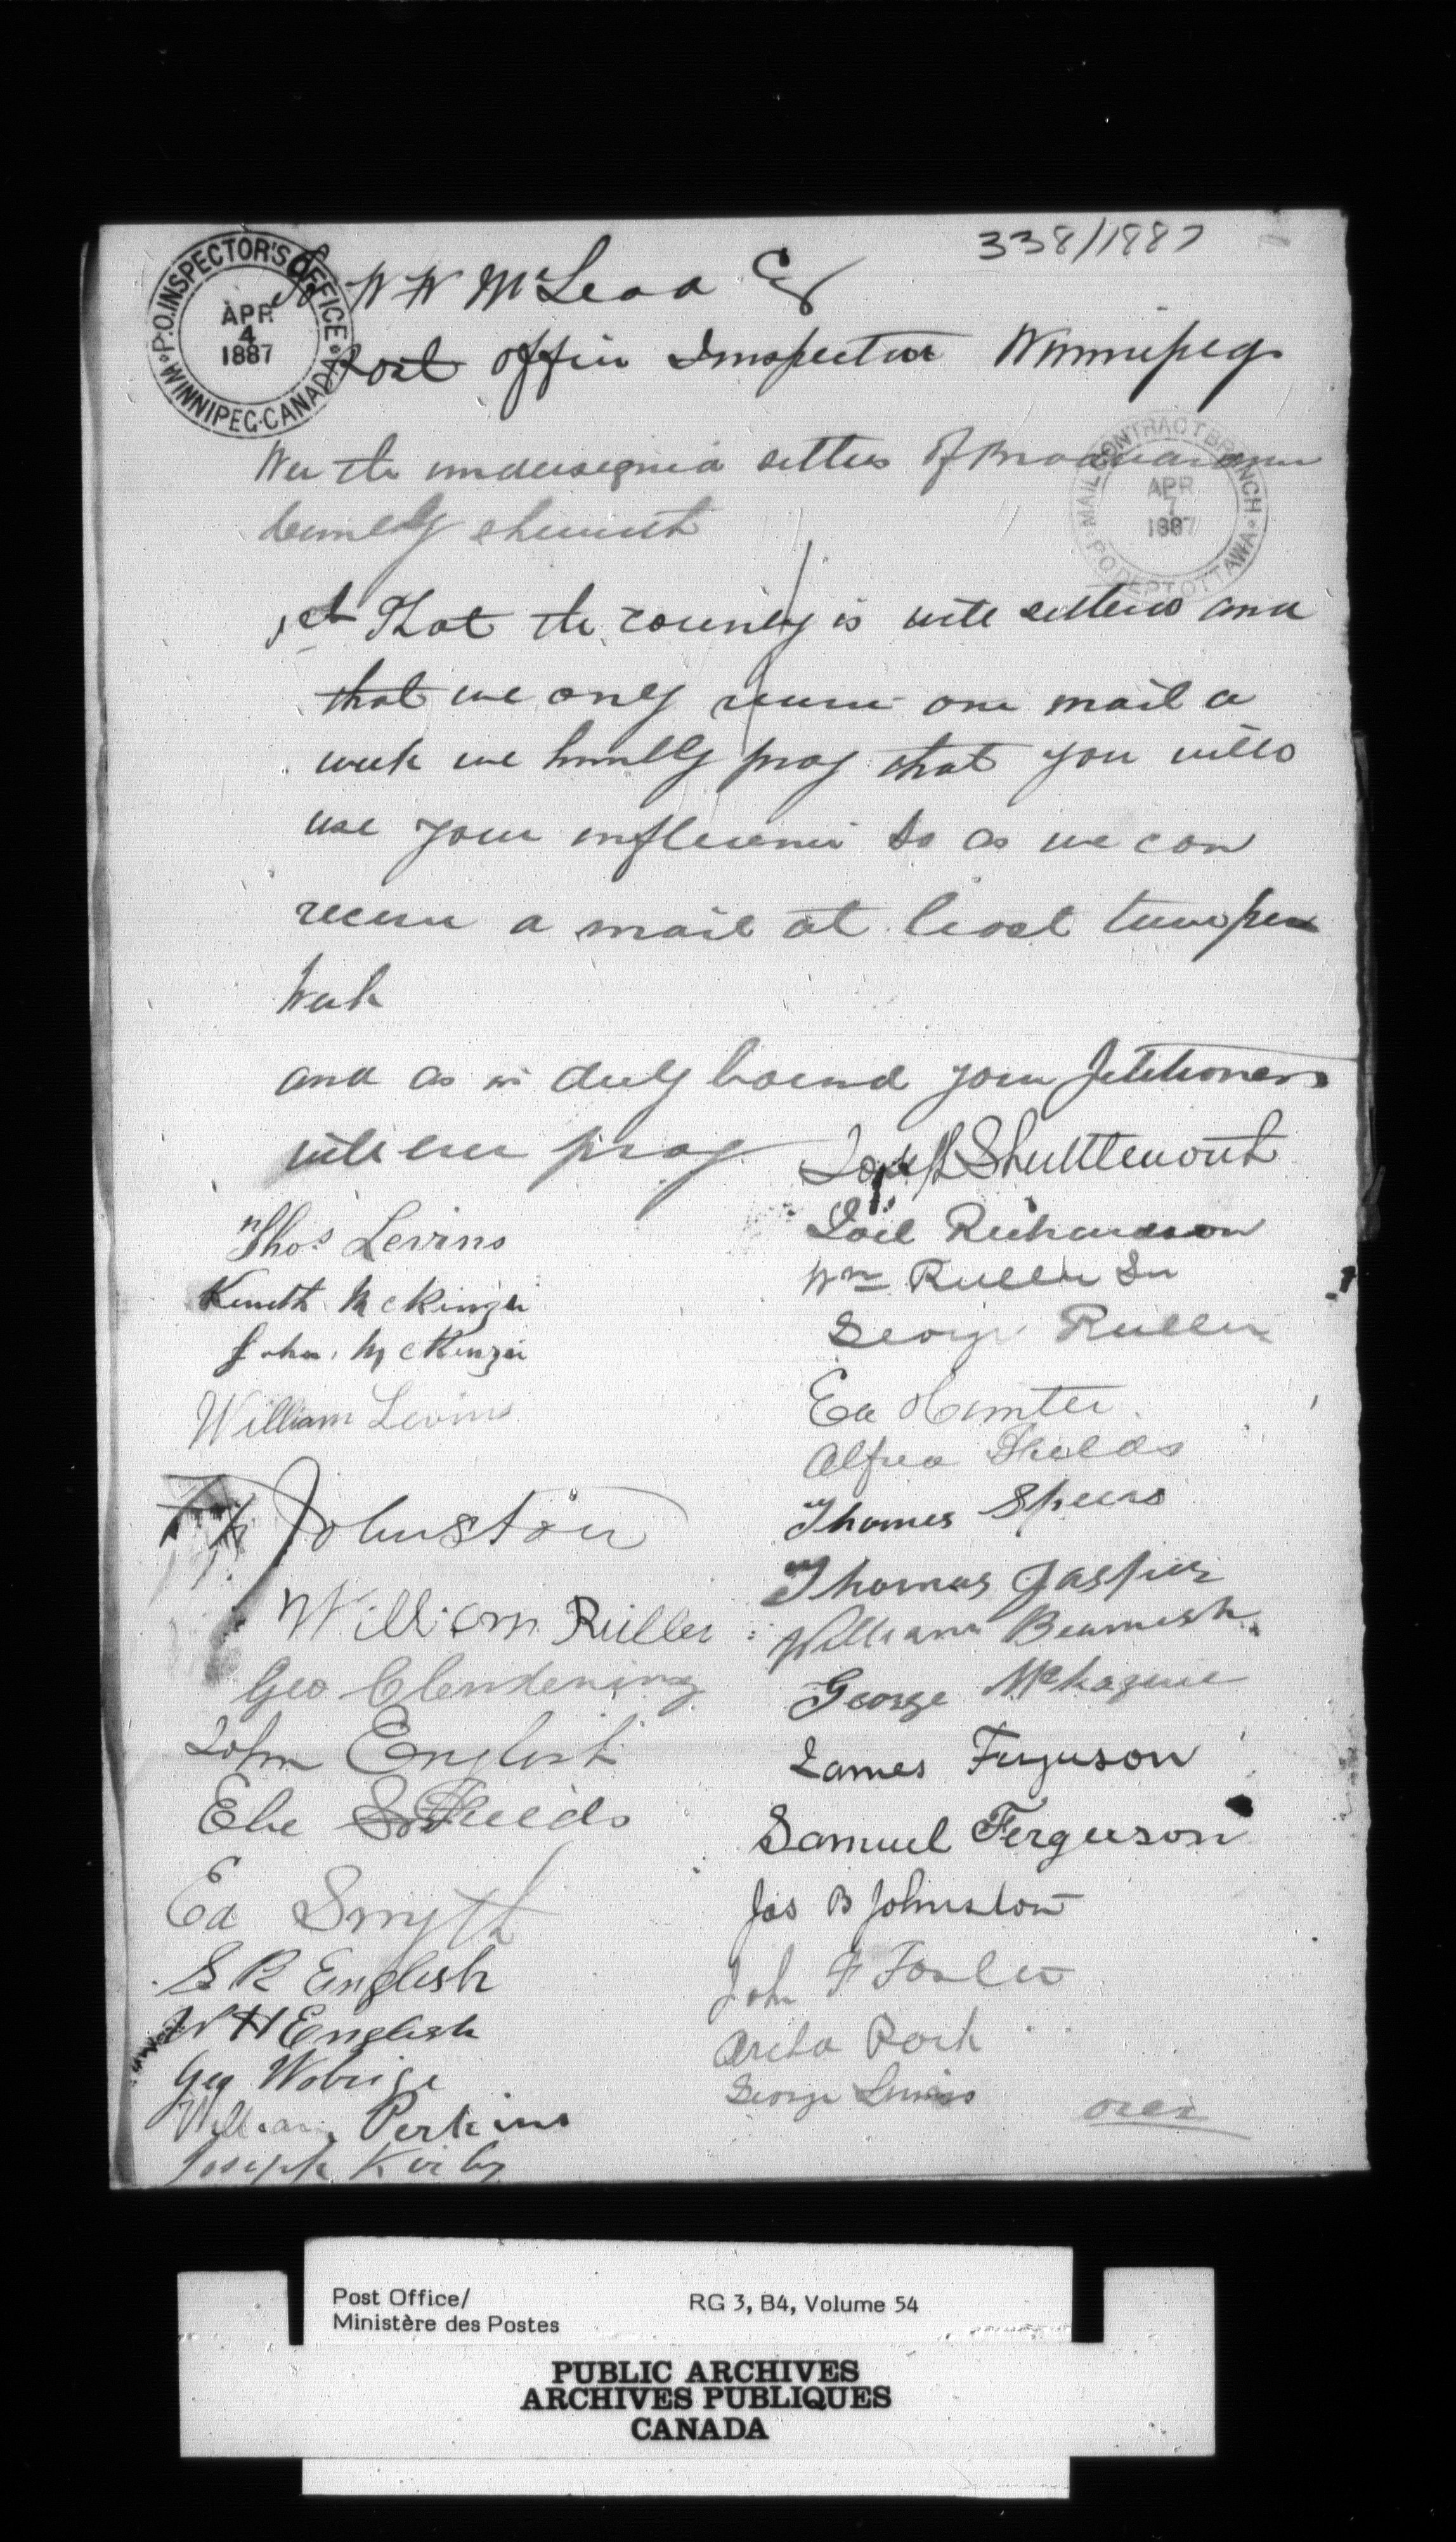 338/1887
P.O. INSPECTOR'S OFFICE
WINNIPEG CANADA
APR
4
1887
To W W McLeod Esq
Post Office Inspector Winnipeg
MAIL CONTRACT BRANCH
P.O. DEPT OTTAWA
APR
7
1887
We the undersigned settlers of
humbly sheweth
1st That the country is well settled and
that we only receive one mail a
week we humbly pray that you will
use your influence so as we can
receive a mail at least twice per
week
and as in duly bound your Petitioners
will ever pray
Joseph Shuttleworth
Joel Richardson
Wm Ruller Sr
George Ruller
Ed Hunter
Alfred Shields
Thomas Speers
Thomas Jasper
William Beamish
George
James Ferguson
Samuel Ferguson
Jas B Johnston
John F Foster
Rork
George
over
Thos Levins
Kenneth McKinzie
John McKenzie
William Levins
Johnston
William Ruller
Geo Clendening
John English
Ebe Shields
Ed Smyth
S R English
W H English
Geo
William Perkins
Joseph Kirby
Post Office/
Ministère des Postes
RG 3, B4, Volume 54
PUBLIC ARCHIVES
ARCHIVES PUBLIQUES
CANADA